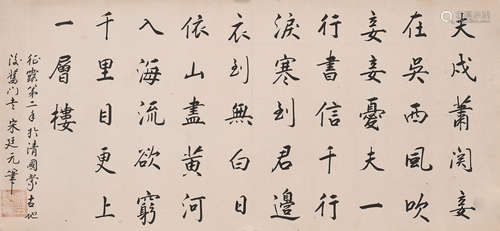 夫戍蕭関妾
在吳西風吹
妾妾憂夫一
行書信千行
淚寒到君邊
衣到無白日
依山盡黃河
入海流欲窮
千里目更上
一層樓
征露第二年於清國蒙古地
宋廷元筆